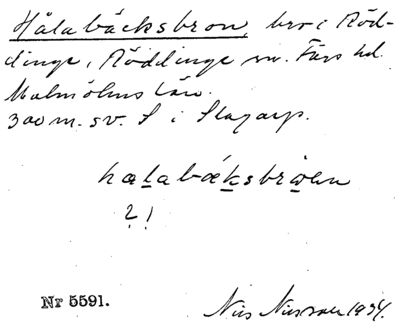 Hålabäcksbron, bro i Röd-
dinge, Röddinge sn. Färs hd.
Malmöhus län.
300 m. sv. S i Slagarp.
halabæksbrwen
?!
Nr 5591.
Nils Nilsson 1934.